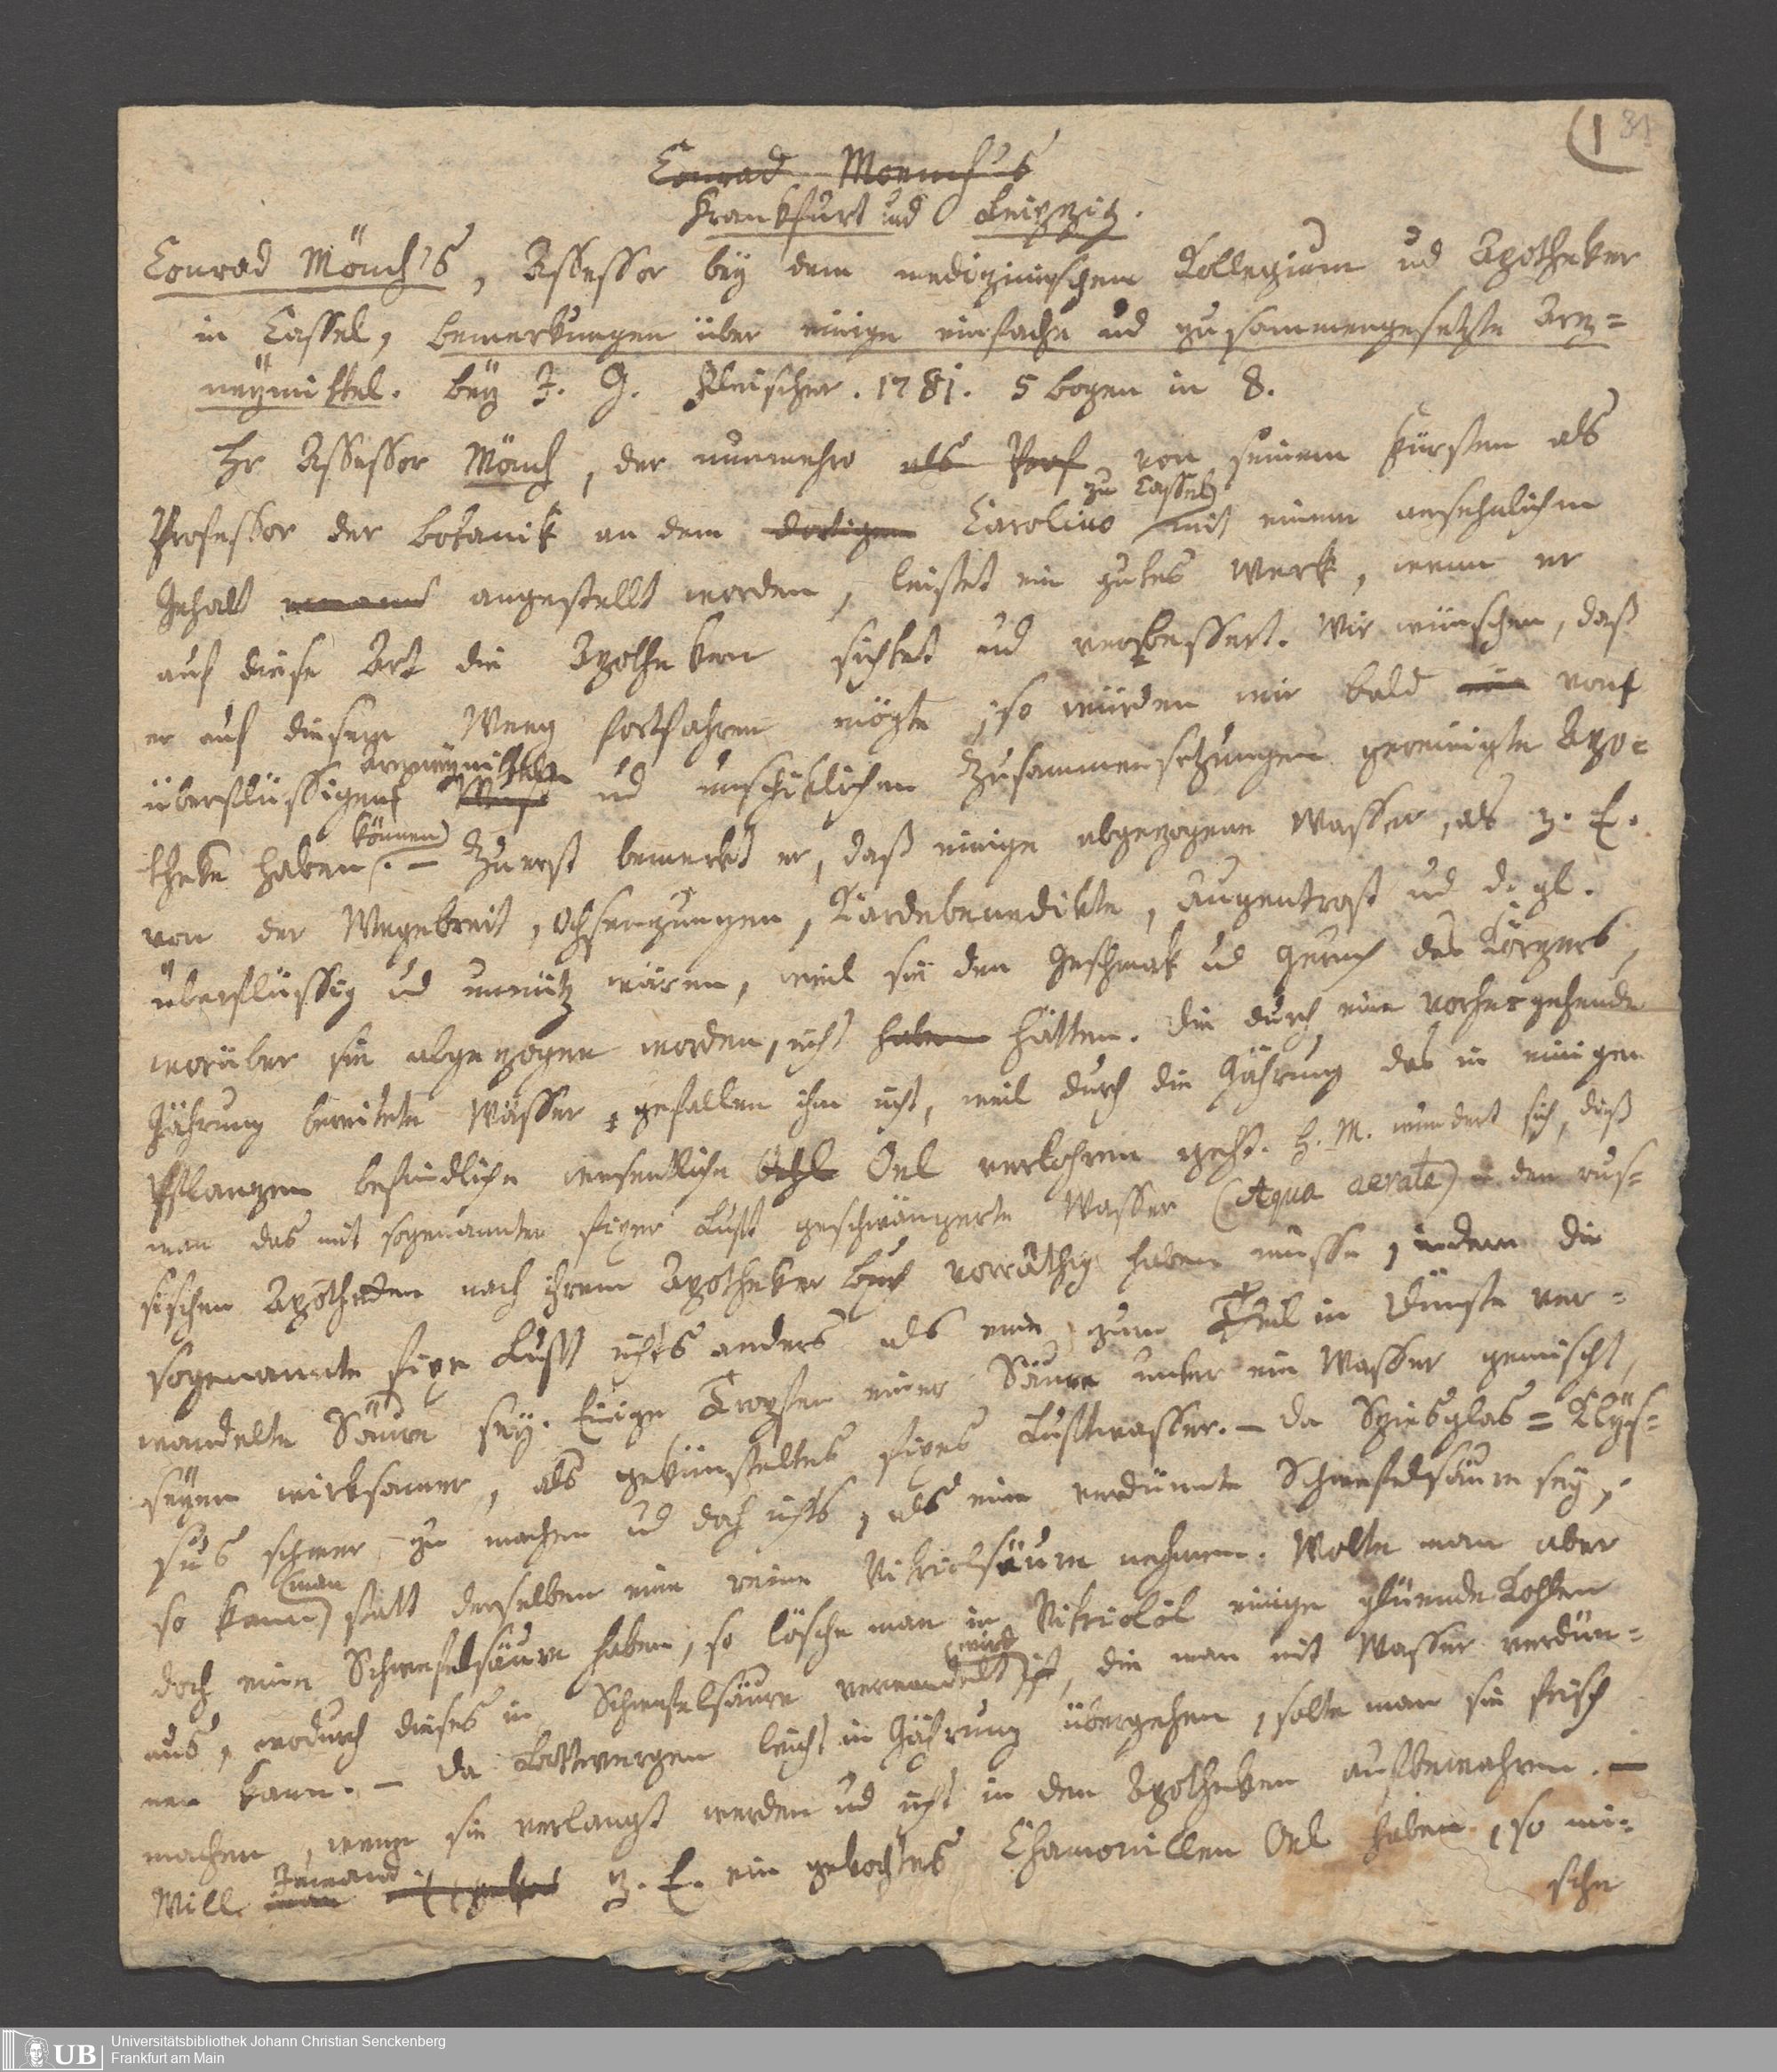 (1 81
Conrad Moench's
Frankfurt und Leipzig.
Conrad Mönch's, Assessor bey dem medizinischen Kollegium und Apotheker
in Cassel, bemerkungen über einige einfache und zusammengesetzte Arz=
neymittel. bey J. G. Fleischer. 1781. 5 bogen in 8.
Hr Assessor Mönch, der nunmehro als Prof von seinem Fürsten als
zu Cassel
Professor der botanik an dem dortigen Carolino mit einem ansehnlichen
Gehalt angestellt worden, leistet ein gutes Werk, wenn er
auf diese Art die Apotheken sichtet und verbessert. Wir wünschen, daß
er auf diesem Weeg fortfahren mögte, so würden wir bald ein von
arzneymitteln
überflüssigen und unschiklichen Zusammensetzungen gereinigte Apo=
können
theke haben. – Zuerst bemerkt er, daß einige abgezogene Wasser, als z. E.
von der Wegebreit, Ochsenzungen, Kardebenedikte, Augentrost und d. gl.
überflüssig und unnütz wären, weil sie den Geschmak und Geruch des Körpers,
worüber sie abgezogen worden, nicht haben hätten. Die durch eine vorhergehende
Gährung bereitete Wässer gefallen ihm nicht, weil durch die Gährung das in einigen
Pflanzen befindliche wesentliche Oehl Oel verlohren geht. H. M. wundert sich, daß
man das mit sogenannter fixer Luft geschwängerte Wasser (Aqua aerata) in den rus=
sischen Apotheken nach ihrem Apotheker buch vorräthig haben müsse, indem die
sogenannte fixe Luft nichts anders als eine zum Theil in Dünste ver=
wandelte Säure sey. Einige Tropfen einer Säure unter ein Wasser gemischt,
seyen wirksamer, als gekünsteltes fixes Luftwasser. – Da Spiesglas=Klys=
sus schwer zu machen und doch nichts, als eine verdünnte Schwefelsäure sey,
man
so kann statt derselben eine reine Vitriolsäure nehmen. Wolte man aber
doch eine Schwefelsäure haben, so lösche man in Vitriolöl einige glüende Kohlen
wird
aus, wodurch dieses in Schwefelsäure verwandelt ist, die man mit Wasser verdün=
nen kann. – Da Lattwergen leicht in Gährung übergehen, solte man sie frisch
machen, wenn sie verlangt werden und nicht in den Apotheken aufbewahren. –
Jemand
Will man z. E. ein gekochtes Chamomillen Oel haben, so mi=
sche
UB Universitätsbibliothek Johann Christian Senckenberg
Frankfurt am Main